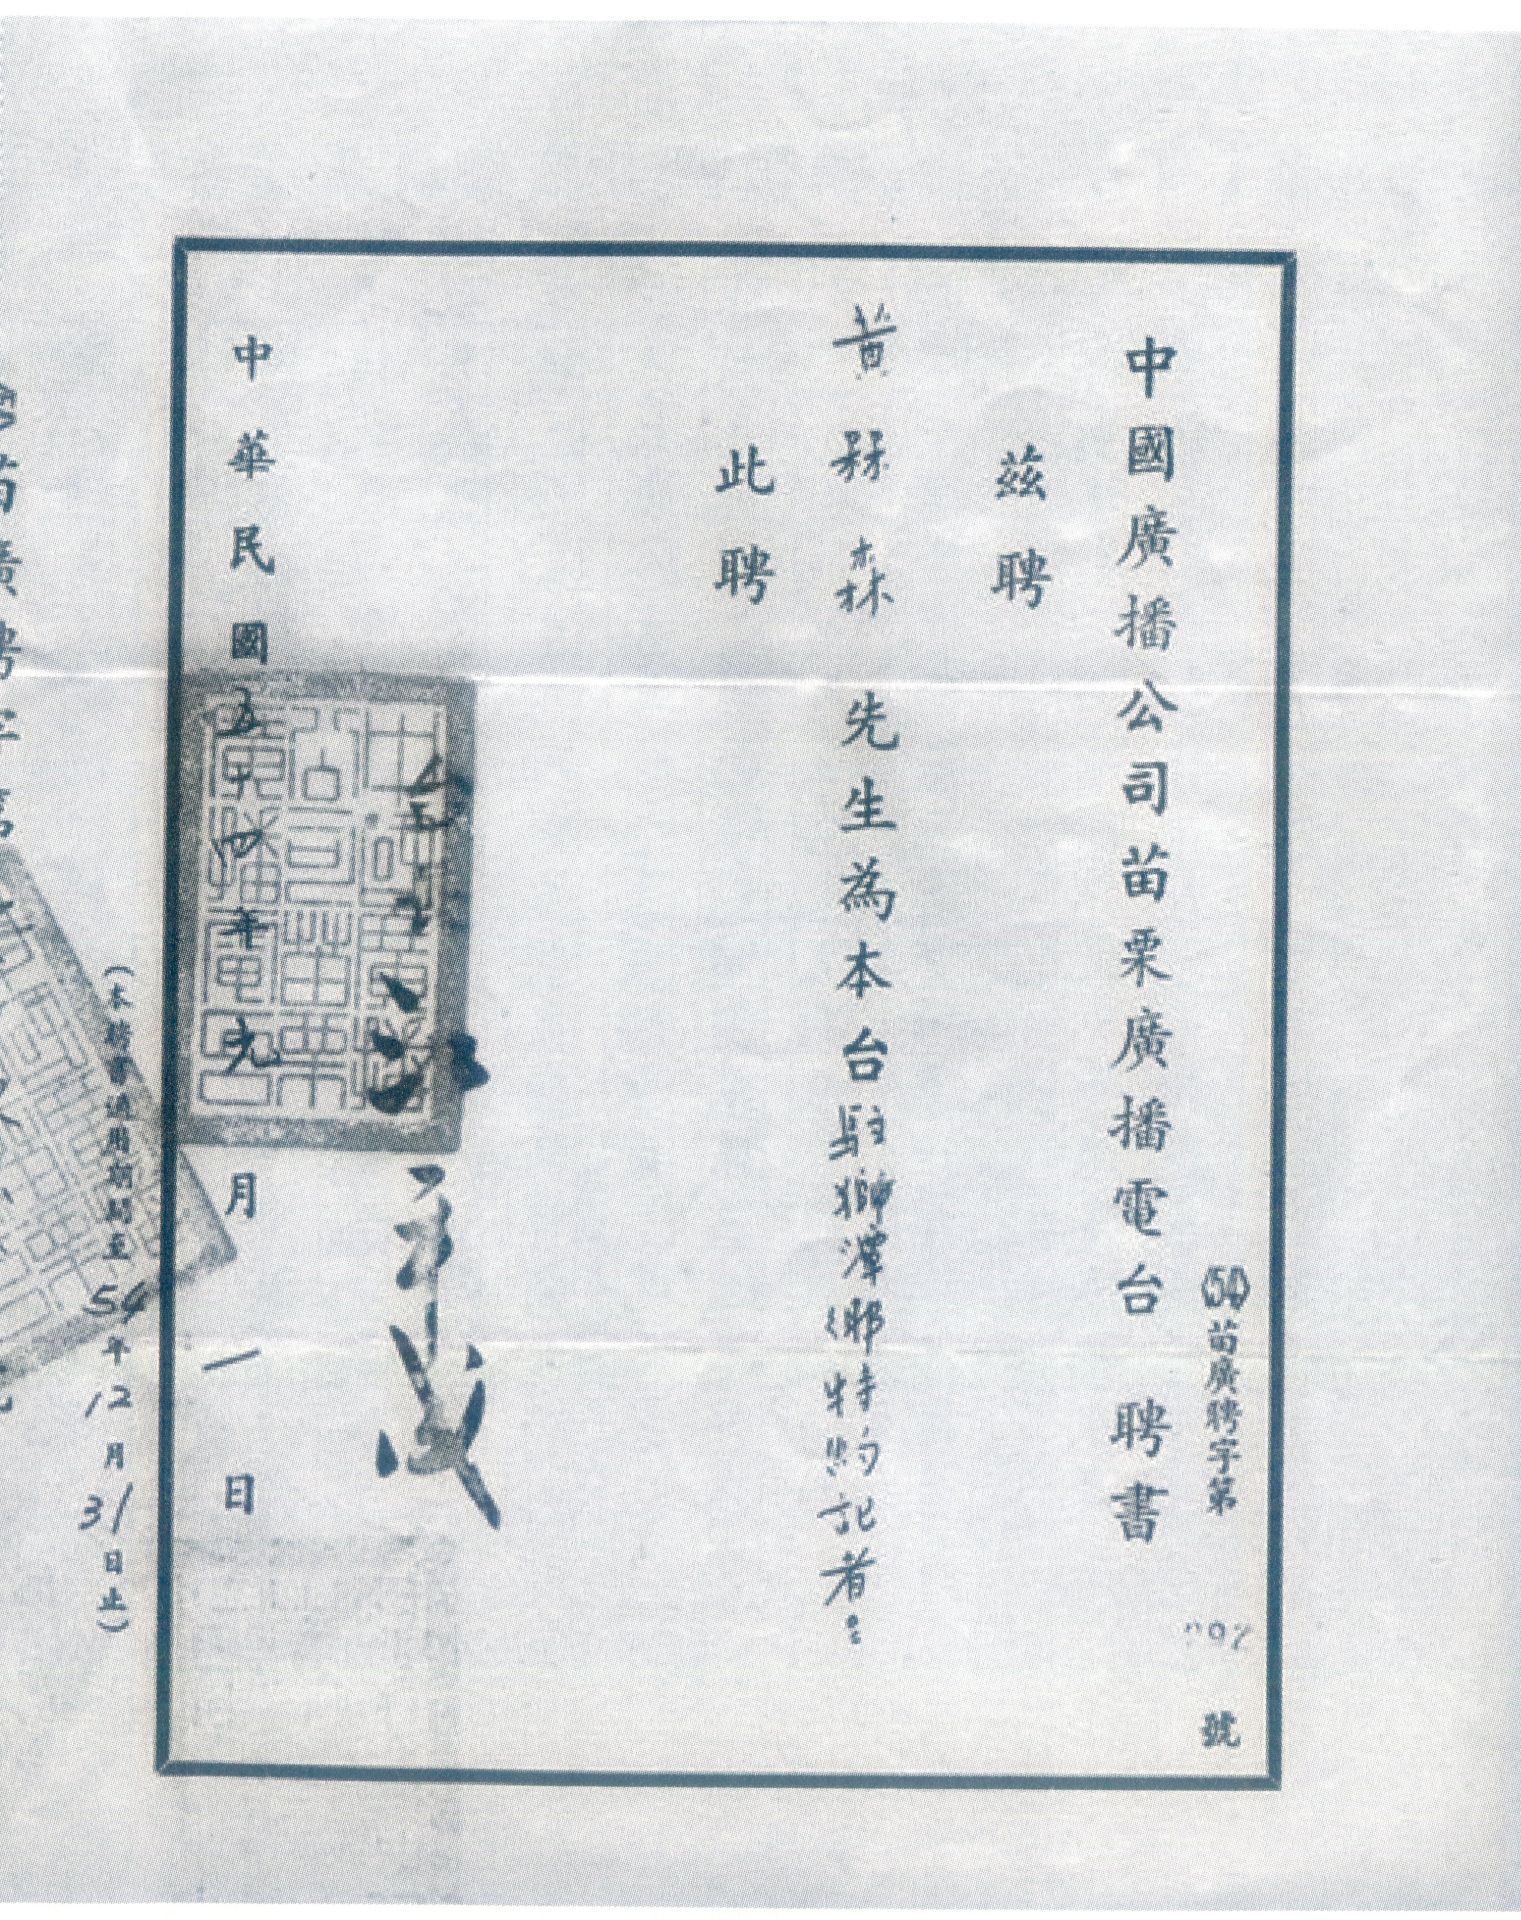 中國廣播公司苗栗廣播電台 聘書
54苗廣聘字第 號
茲聘
黃 森 先生為本台駐獅潭鄉特約記者
此聘
中華民國五十四年元月一日
(本聘書適用期間至54年12月31日止)
苗廣聘字第